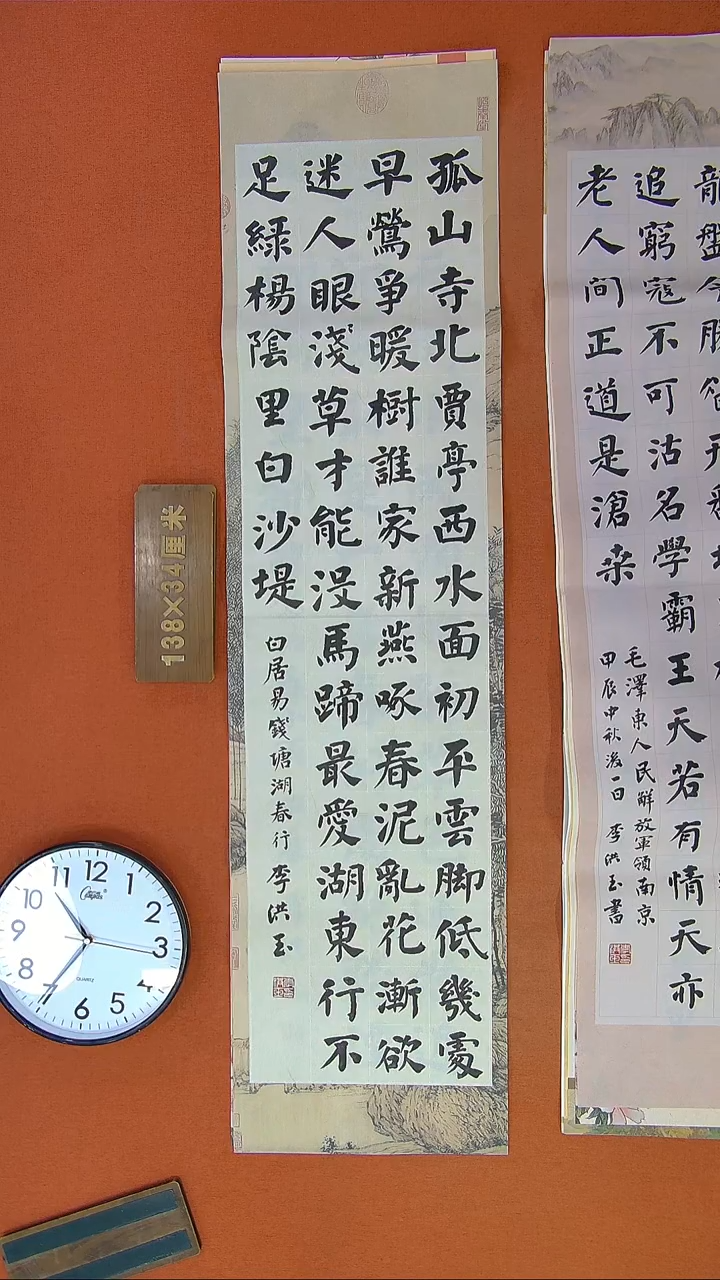 孤山寺北賈亭西水面初平雲脚低幾處
早鶯爭暖樹誰家新燕啄春泥亂花漸欲
迷人眼淺草才能沒馬蹄最愛湖東行不
足綠楊陰里白沙堤
白居易錢塘湖春行 李洪玉
龍盤今勝
追窮寇不可沽名學霸王天若有情天亦
老人間正道是滄桑
毛澤東人民解放軍領南京
甲辰中秋後一日 李洪玉書
138×34厘米
12
1
2
3
5
6
7
8
9
10
11
QUARTZ